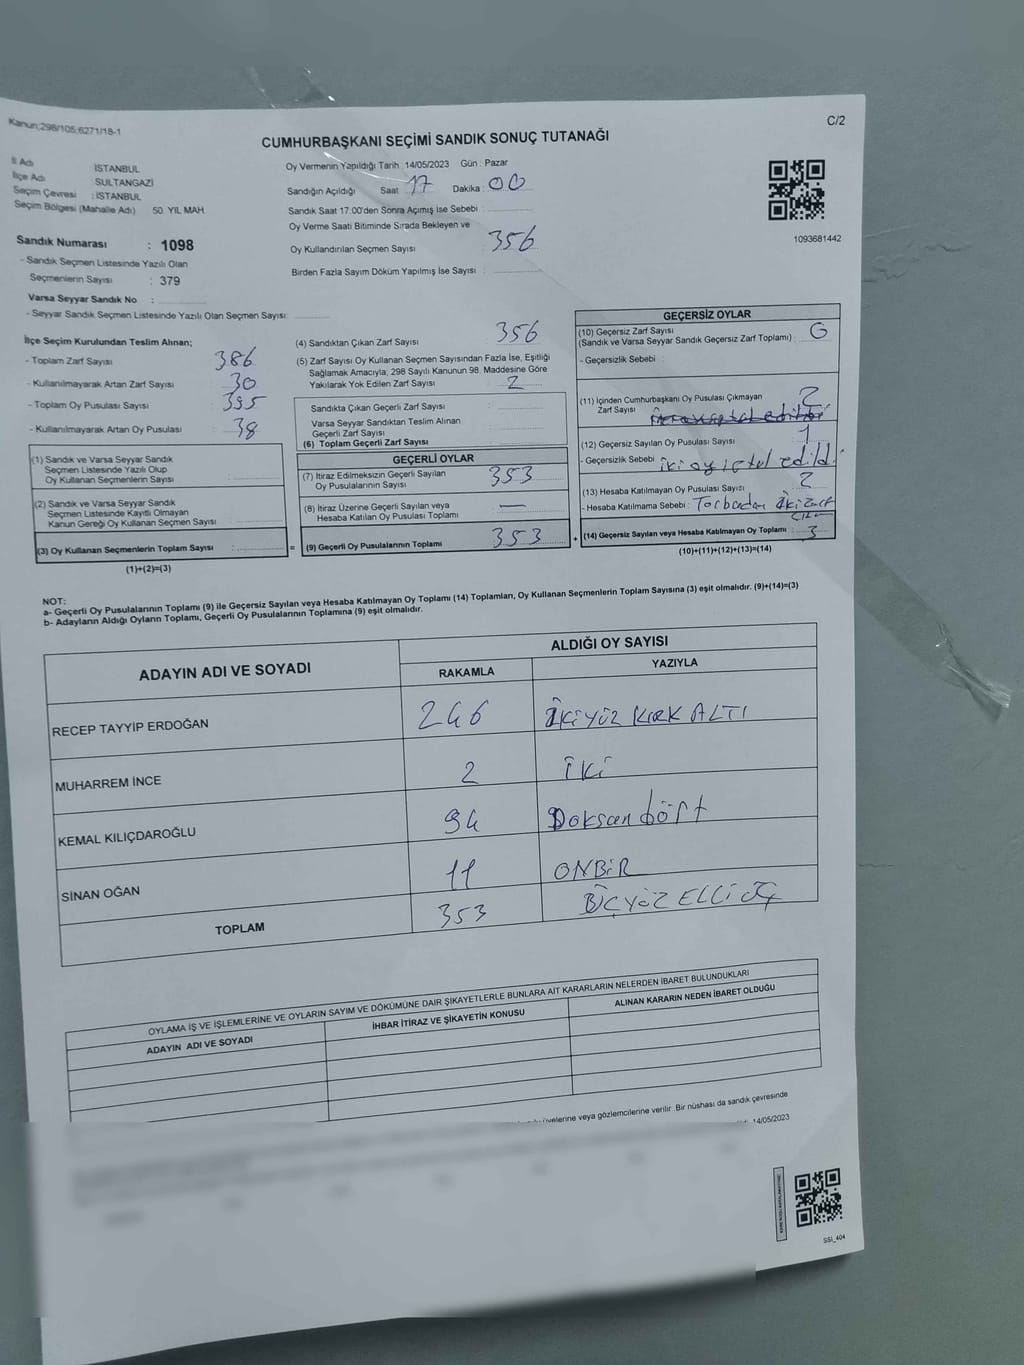 Kanun;298/105;6271/18-1
C/2
CUMHURBAŞKANI SEÇİMİ SANDIK SONUÇ TUTANAĞI
İl Adı : İSTANBUL
İlçe Adı : SULTANGAZİ
Seçim Çevresi : İSTANBUL
Seçim Bölgesi (Mahalle Adı) 50. YIL MAH.
Sandık Numarası : 1098
- Sandık Seçmen Listesinde Yazılı Olan
Seçmenlerin Sayısı : 379
Varsa Seyyar Sandık No :
- Seyyar Sandık Seçmen Listesinde Yazılı Olan Seçmen Sayısı:
Oy Vermenin Yapıldığı Tarih : 14/05/2023 Gün : Pazar
Sandığın Açıldığı Saat : 17 Dakika : 00
Sandık Saat 17:00'den Sonra Açımış İse Sebebi :
Oy Verme Saati Bitiminde Sırada Bekleyen ve
Oy Kullandırılan Seçmen Sayısı : 356
Birden Fazla Sayım Döküm Yapılmış İse Sayısı :
1093681442
İlçe Seçim Kurulundan Teslim Alınan;
- Toplam Zarf Sayısı 386
- Kullanılmayarak Artan Zarf Sayısı 30
- Toplam Oy Pusulası Sayısı 395
- Kullanılmayarak Artan Oy Pusulası 38
(1) Sandık ve Varsa Seyyar Sandık
Seçmen Listesinde Yazılı Olup
Oy Kullanan Seçmenlerin Sayısı :
(2) Sandık ve Varsa Seyyar Sandık
Seçmen Listesinde Kayıtlı Olmayan
Kanun Gereği Oy Kullanan Seçmen Sayısı :
(3) Oy Kullanan Seçmenlerin Toplam Sayısı : =
(1)+(2)=(3)
(4) Sandıktan Çıkan Zarf Sayısı : 356
(5) Zarf Sayısı Oy Kullanan Seçmen Sayısından Fazla İse, Eşitliği
Sağlamak Amacıyla, 298 Sayılı Kanunun 98. Maddesine Göre
Yakılarak Yok Edilen Zarf Sayısı : 2
Sandıkta Çıkan Geçerli Zarf Sayısı :
Varsa Seyyar Sandıktan Teslim Alınan
Geçerli Zarf Sayısı :
(6) Toplam Geçerli Zarf Sayısı :
GEÇERLİ OYLAR
(7) İtiraz Edilmeksizin Geçerli Sayılan
Oy Pusulalarının Sayısı : 353
(8) İtiraz Üzerine Geçerli Sayılan veya
Hesaba Katılan Oy Pusulası Toplamı : —
(9) Geçerli Oy Pusulalarının Toplamı : 353 +
GEÇERSİZ OYLAR
(10) Geçersiz Zarf Sayısı
(Sandık ve Varsa Seyyar Sandık Geçersiz Zarf Toplamı) :
- Geçersizlik Sebebi :
(11) İçinden Cumhurbaşkanı Oy Pusulası Çıkmayan
Zarf Sayısı : 2
(12) Geçersiz Sayılan Oy Pusulası Sayısı : 1
- Geçersizlik Sebebi : iki oy iptal edildi
(13) Hesaba Katılmayan Oy Pusulası Sayısı : 2
- Hesaba Katılmama Sebebi : Torbadan iki zarf
(14) Geçersiz Sayılan veya Hesaba Katılmayan Oy Toplamı : 3
(10)+(11)+(12)+(13)=(14)
NOT:
a- Geçerli Oy Pusulalarının Toplamı (9) ile Geçersiz Sayılan veya Hesaba Katılmayan Oy Toplamı (14) Toplamları, Oy Kullanan Seçmenlerin Toplam Sayısına (3) eşit olmalıdır. (9)+(14)=(3)
b- Adayların Aldığı Oyların Toplamı, Geçerli Oy Pusulalarının Toplamına (9) eşit olmalıdır.
ADAYIN ADI VE SOYADI
ALDIĞI OY SAYISI
RAKAMLA YAZIYLA
RECEP TAYYİP ERDOĞAN 246 İKİYÜZ KIRK ALTI
MUHARREM İNCE 2 İKİ
KEMAL KILIÇDAROĞLU 94 Doksan dört
SİNAN OĞAN 11 ONBİR
TOPLAM 353 ÜÇYÜZ ELLİ ÜÇ
OYLAMA İŞ VE İŞLEMLERİNE VE OYLARIN SAYIM VE DÖKÜMÜNE DAİR ŞİKAYETLERLE BUNLARA AİT KARARLARIN NELERDEN İBARET BULUNDUKLARI
ADAYIN ADI VE SOYADI İHBAR İTİRAZ VE ŞİKAYETİN KONUSU ALINAN KARARIN NEDEN İBARET OLDUĞU
üyelerine veya gözlemcilerine verilir. Bir nüshası da sandık çevresinde
14/05/2023
SSI_404